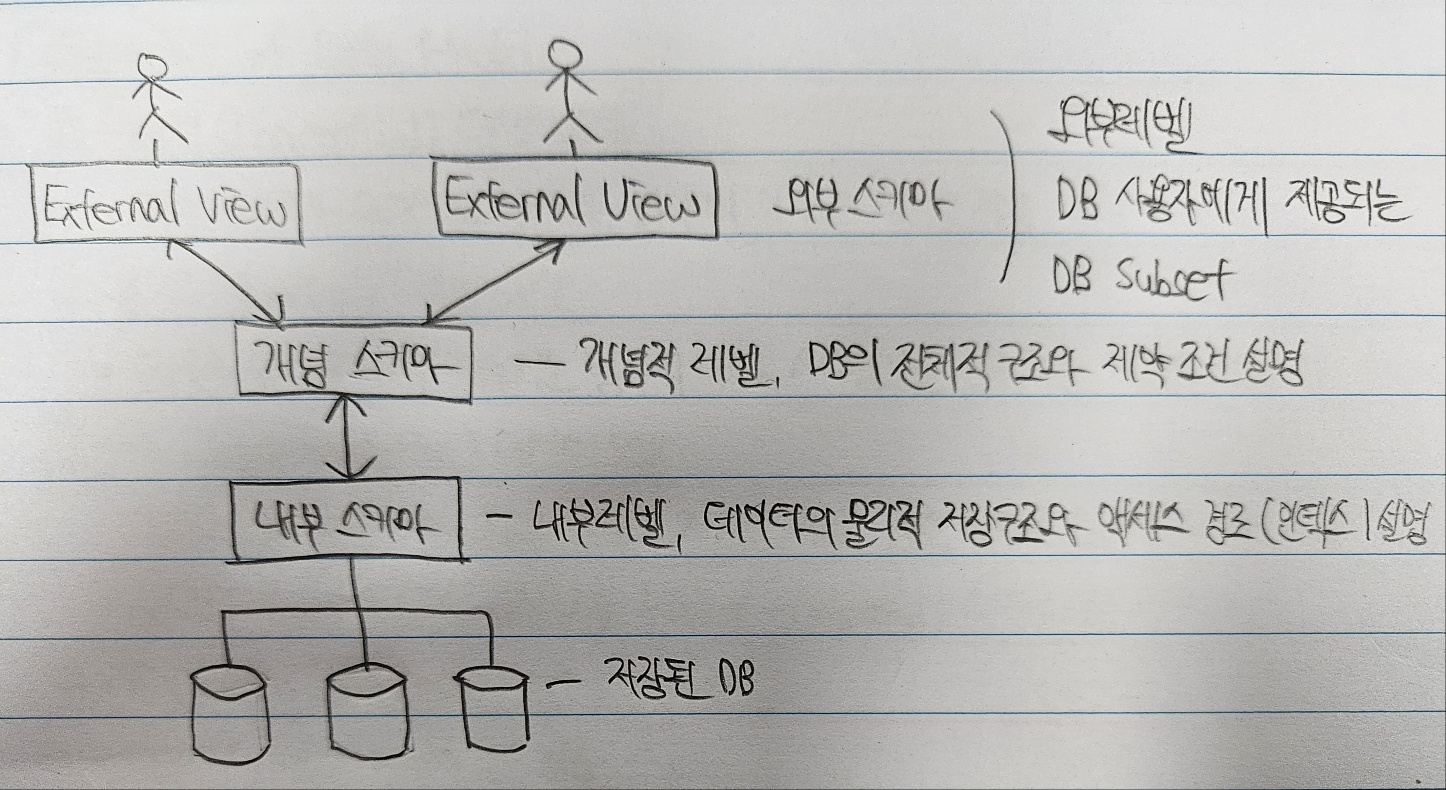 외부레벨
External View External View 외부 스키마 DB 사용자에게 제공되는
DB Subset
개념 스키마 — 개념적 레벨, DB의 전체적 구조와 제약 조건 설명
내부 스키마 — 내부레벨, 데이터의 물리적 저장구조와 액세스 경로(인덱스) 설명
— 저장된 DB